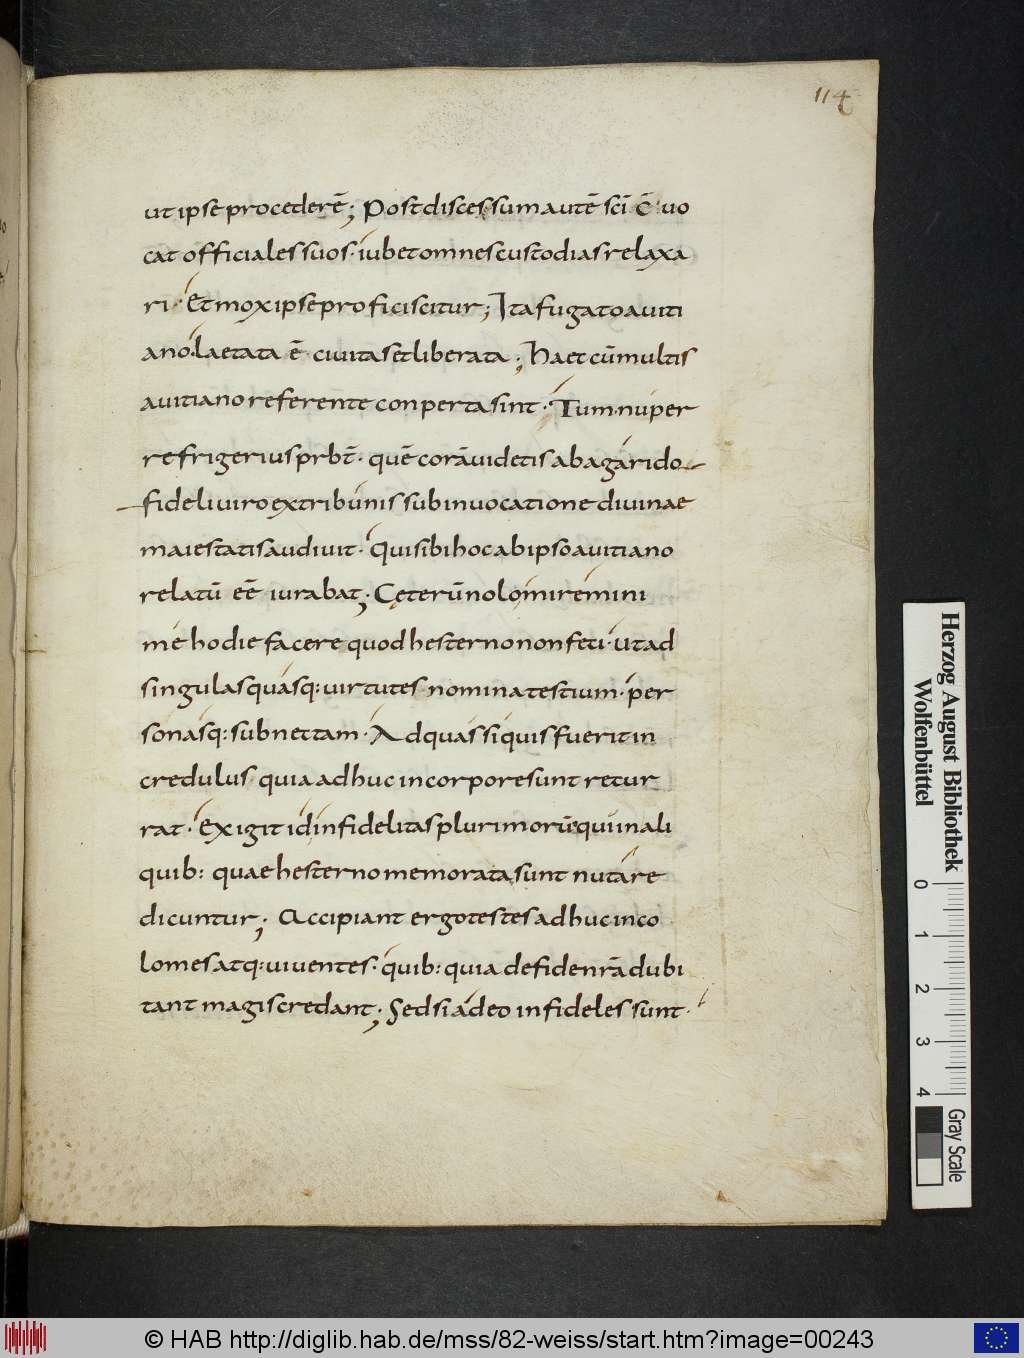 114
ut ipse procederē; Post discessum autē sc̄i c̄uo
cat officiales suos· iubet omnes custodias relaxa
ri· Et mox ipse proficiscitur; Ita fugato auiti
ano· laetata ē ciuitas et liberata; Haet cū multis
auitiano referente conperta sint· Tum· nuper
refrigerius prbt̄· quē corā uidetis ab agarido
fideli uiro ex tribunis sub inuocatione diuinae
maiestatis audiuit· Qui sibi hoc ab ipso auitiano
relatū eē iurabat; Cęterū nolo miremini
me hodie facere quod hesterno non feti· ut ad
singulas quasq: uirtutes nomina testium· per
sonasq: subnettam· Ad quas si quis fuerit in
credulus quia adhuc in corpore sunt retur
rat· Exigit id infidelitas plurimorū qui in ali
quib: quae hesterno memorata sunt nutare
dicuntur; Accipiant ergo testes adhuc inco
lomes atq: uiuentes· quib: quia de fide nr̄a dubi
tant magis credant; Sed si adeo infideles sunt·
Herzog August Bibliothek
Wolfenbüttel
0 1 2 3 4
Gray Scale
© HAB http://diglib.hab.de/mss/82-weiss/start.htm?image=00243